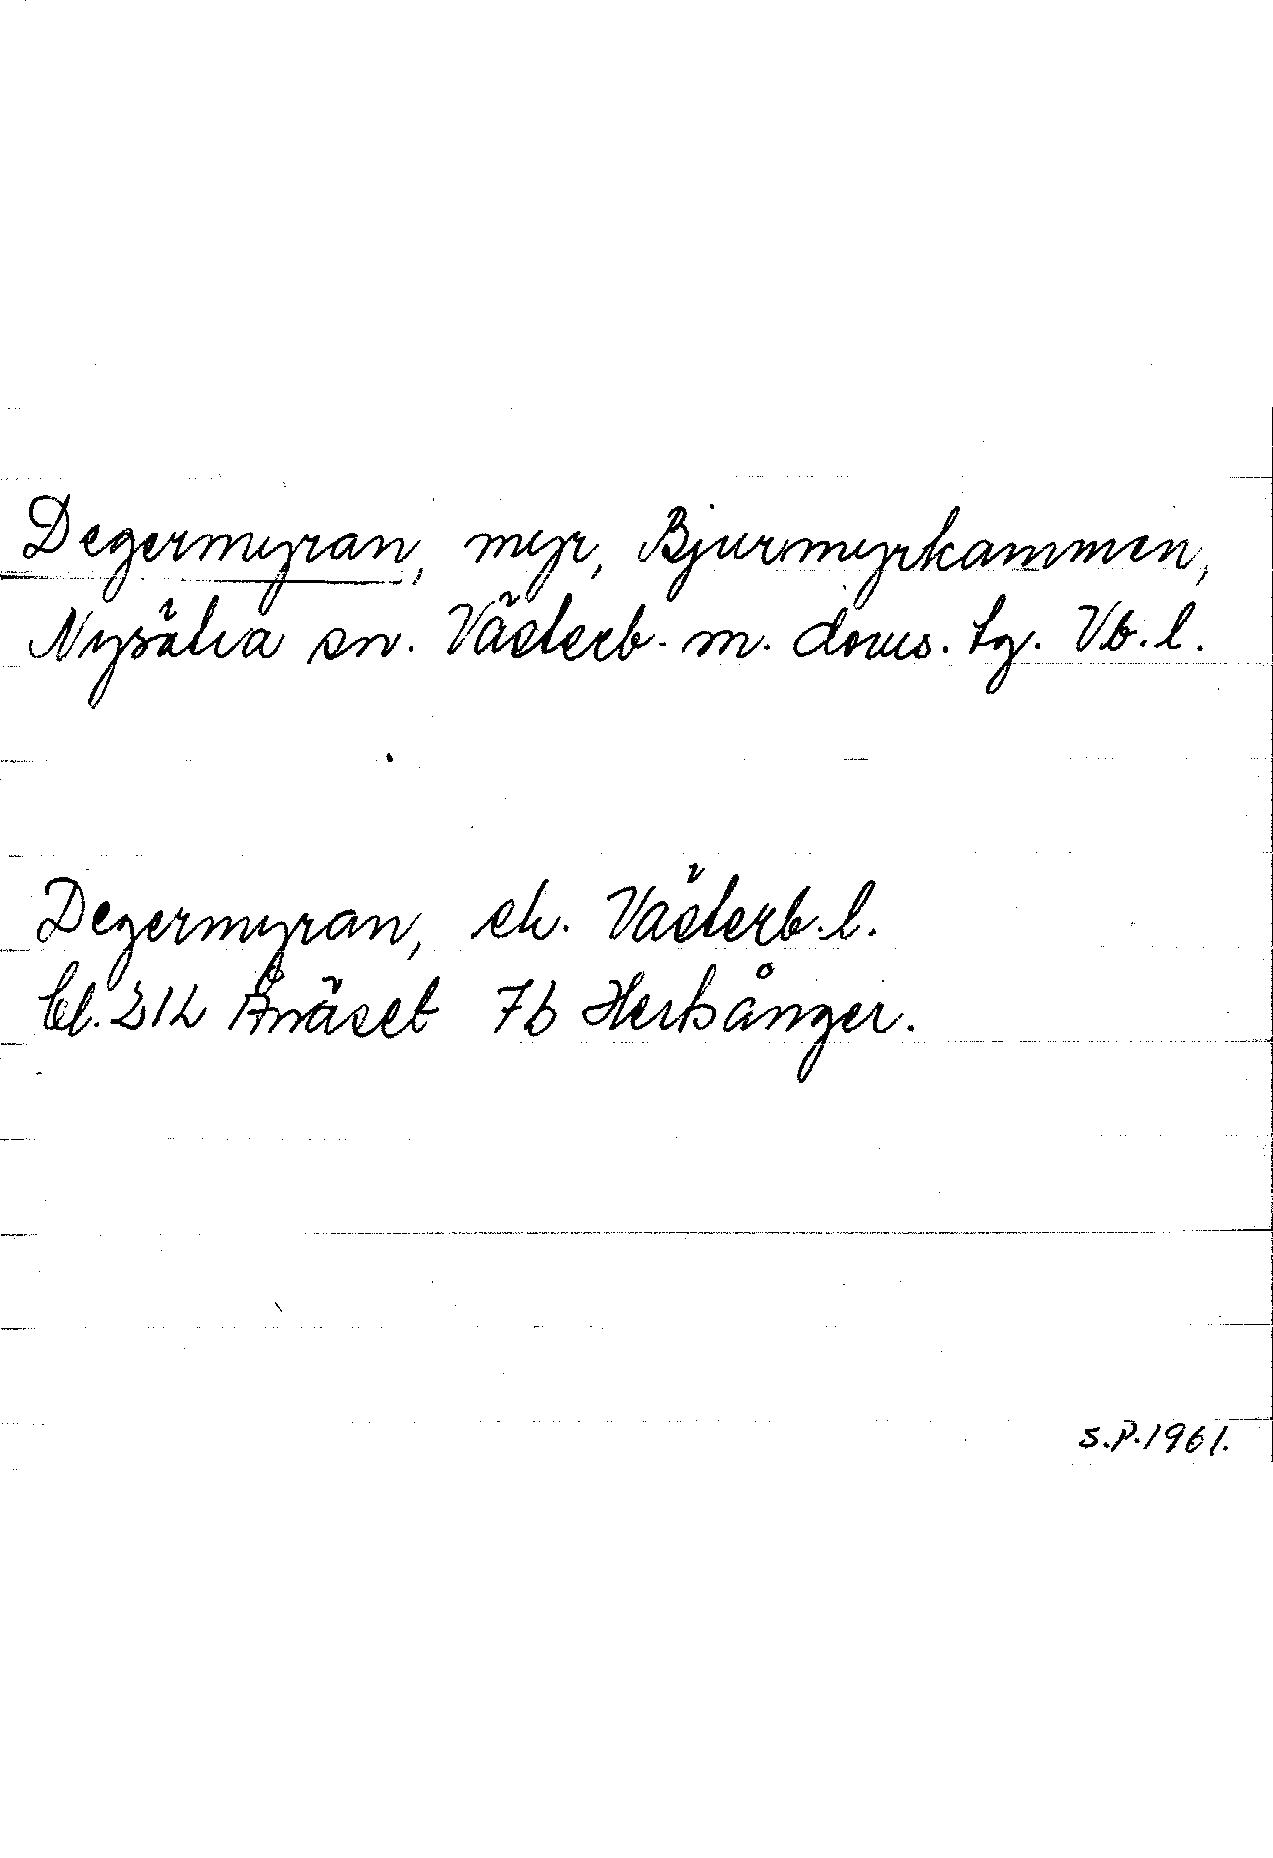 Degermyran, myr, Bjurmyrkammen,
Nysätra sn. Västerb. m. doms. tg. Vb. l.
Degermyran, ek. Västerb. l.
bl. 21L Ånäset 7b Hertsånger.
S.P. 1961.